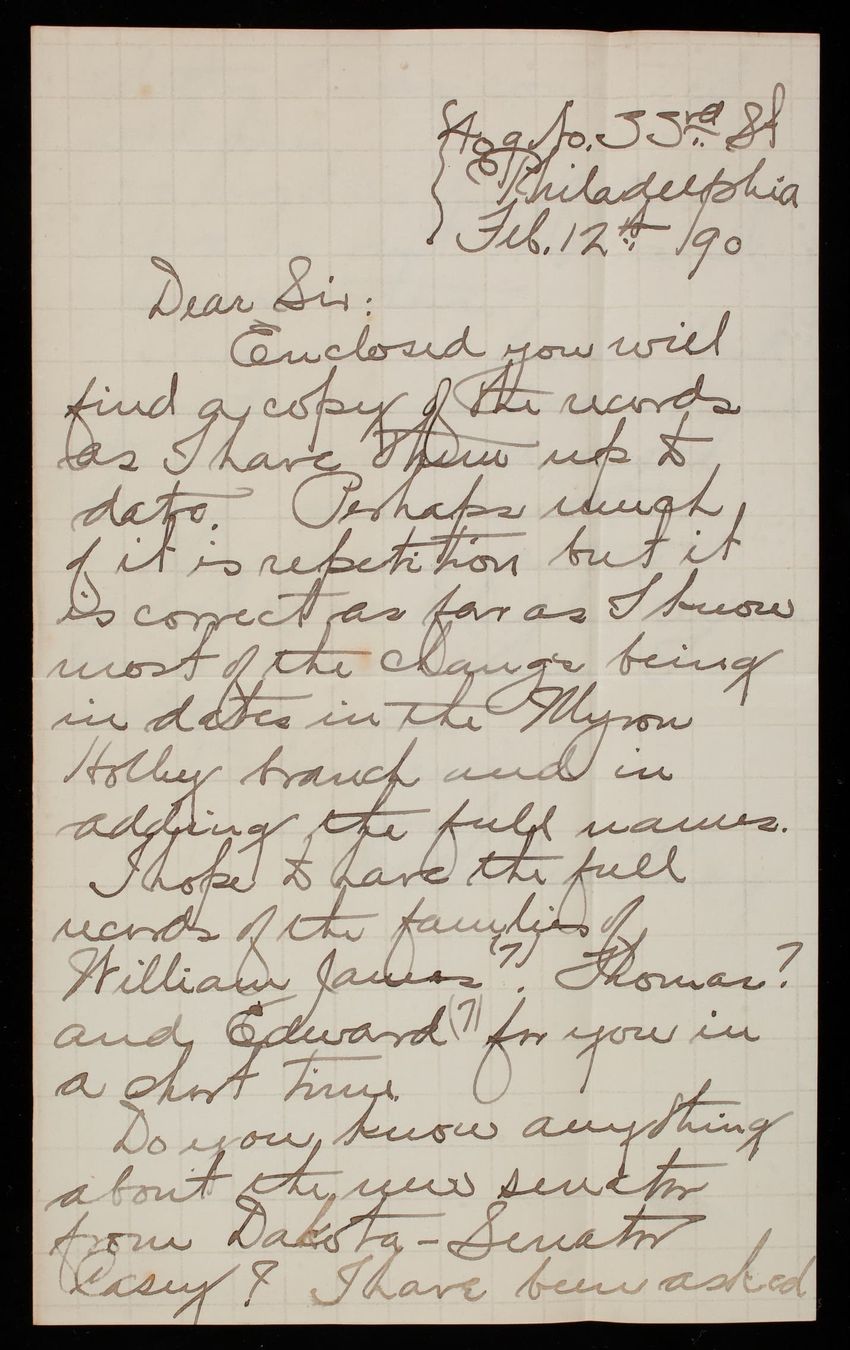 409 No. 33rd St
Philadelphia
Feb. 12th /90
Dear Sir:
Enclosed you will
find a copy of the records
as I have them up to
date. Perhaps much
of it is repetition but it
is correct as far as I know
most of the change being
in dates in the Myron
Holley branch and in
adding the full names.
I hope to have the full
records of the families of
William James (7). Thomas 7
and Edward (7) for you in
a short time.
Do you know anything
about the new senator
from Dakota - Senator
Casey? I have been asked